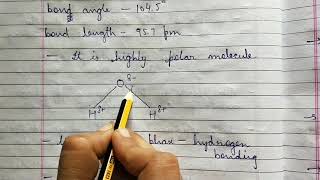 bond angle - 104.5°
bond length - 95.7 pm
- It is highly polar molecule
O δ-
H δ+ H δ+
phase - hydrogen
bonding